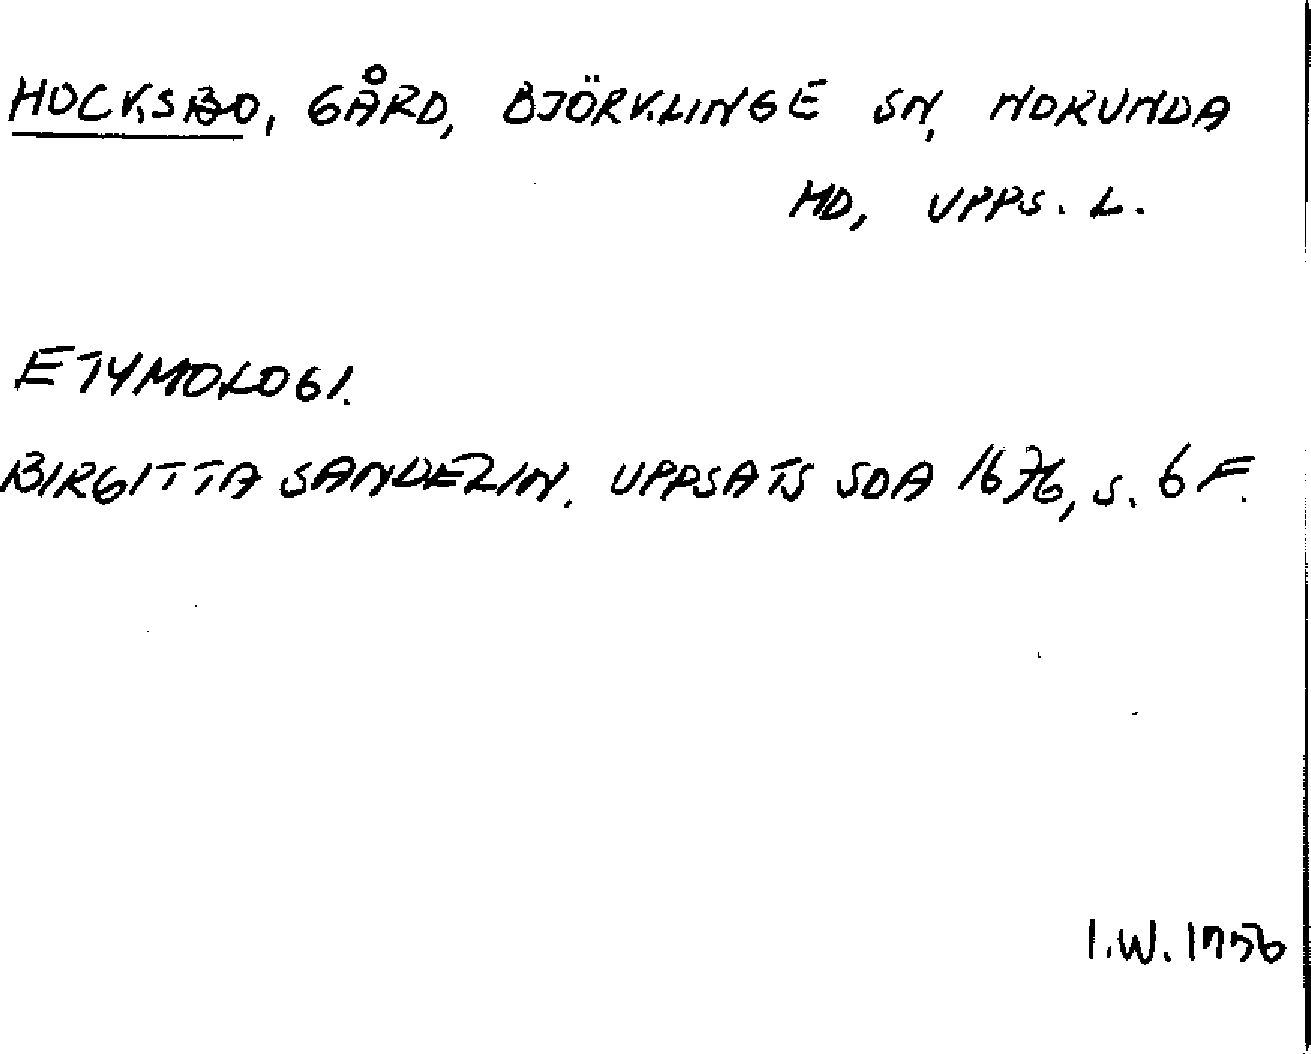 HOCKSBO, GÅRD, BJÖRKLINGE SN, NORUNDA
HD, UPPS. L.
ETYMOLOGI.
BIRGITTA SANDELIN. UPPSATS SOA 1676, S. 6 F.
I.W.